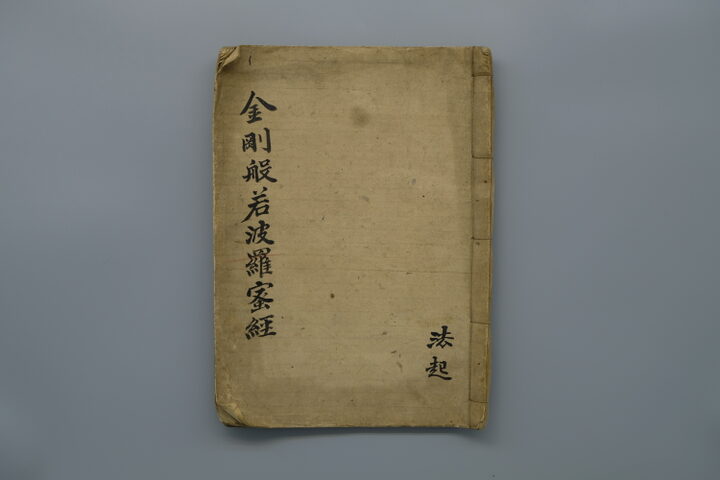 金剛般若波羅蜜経
法起